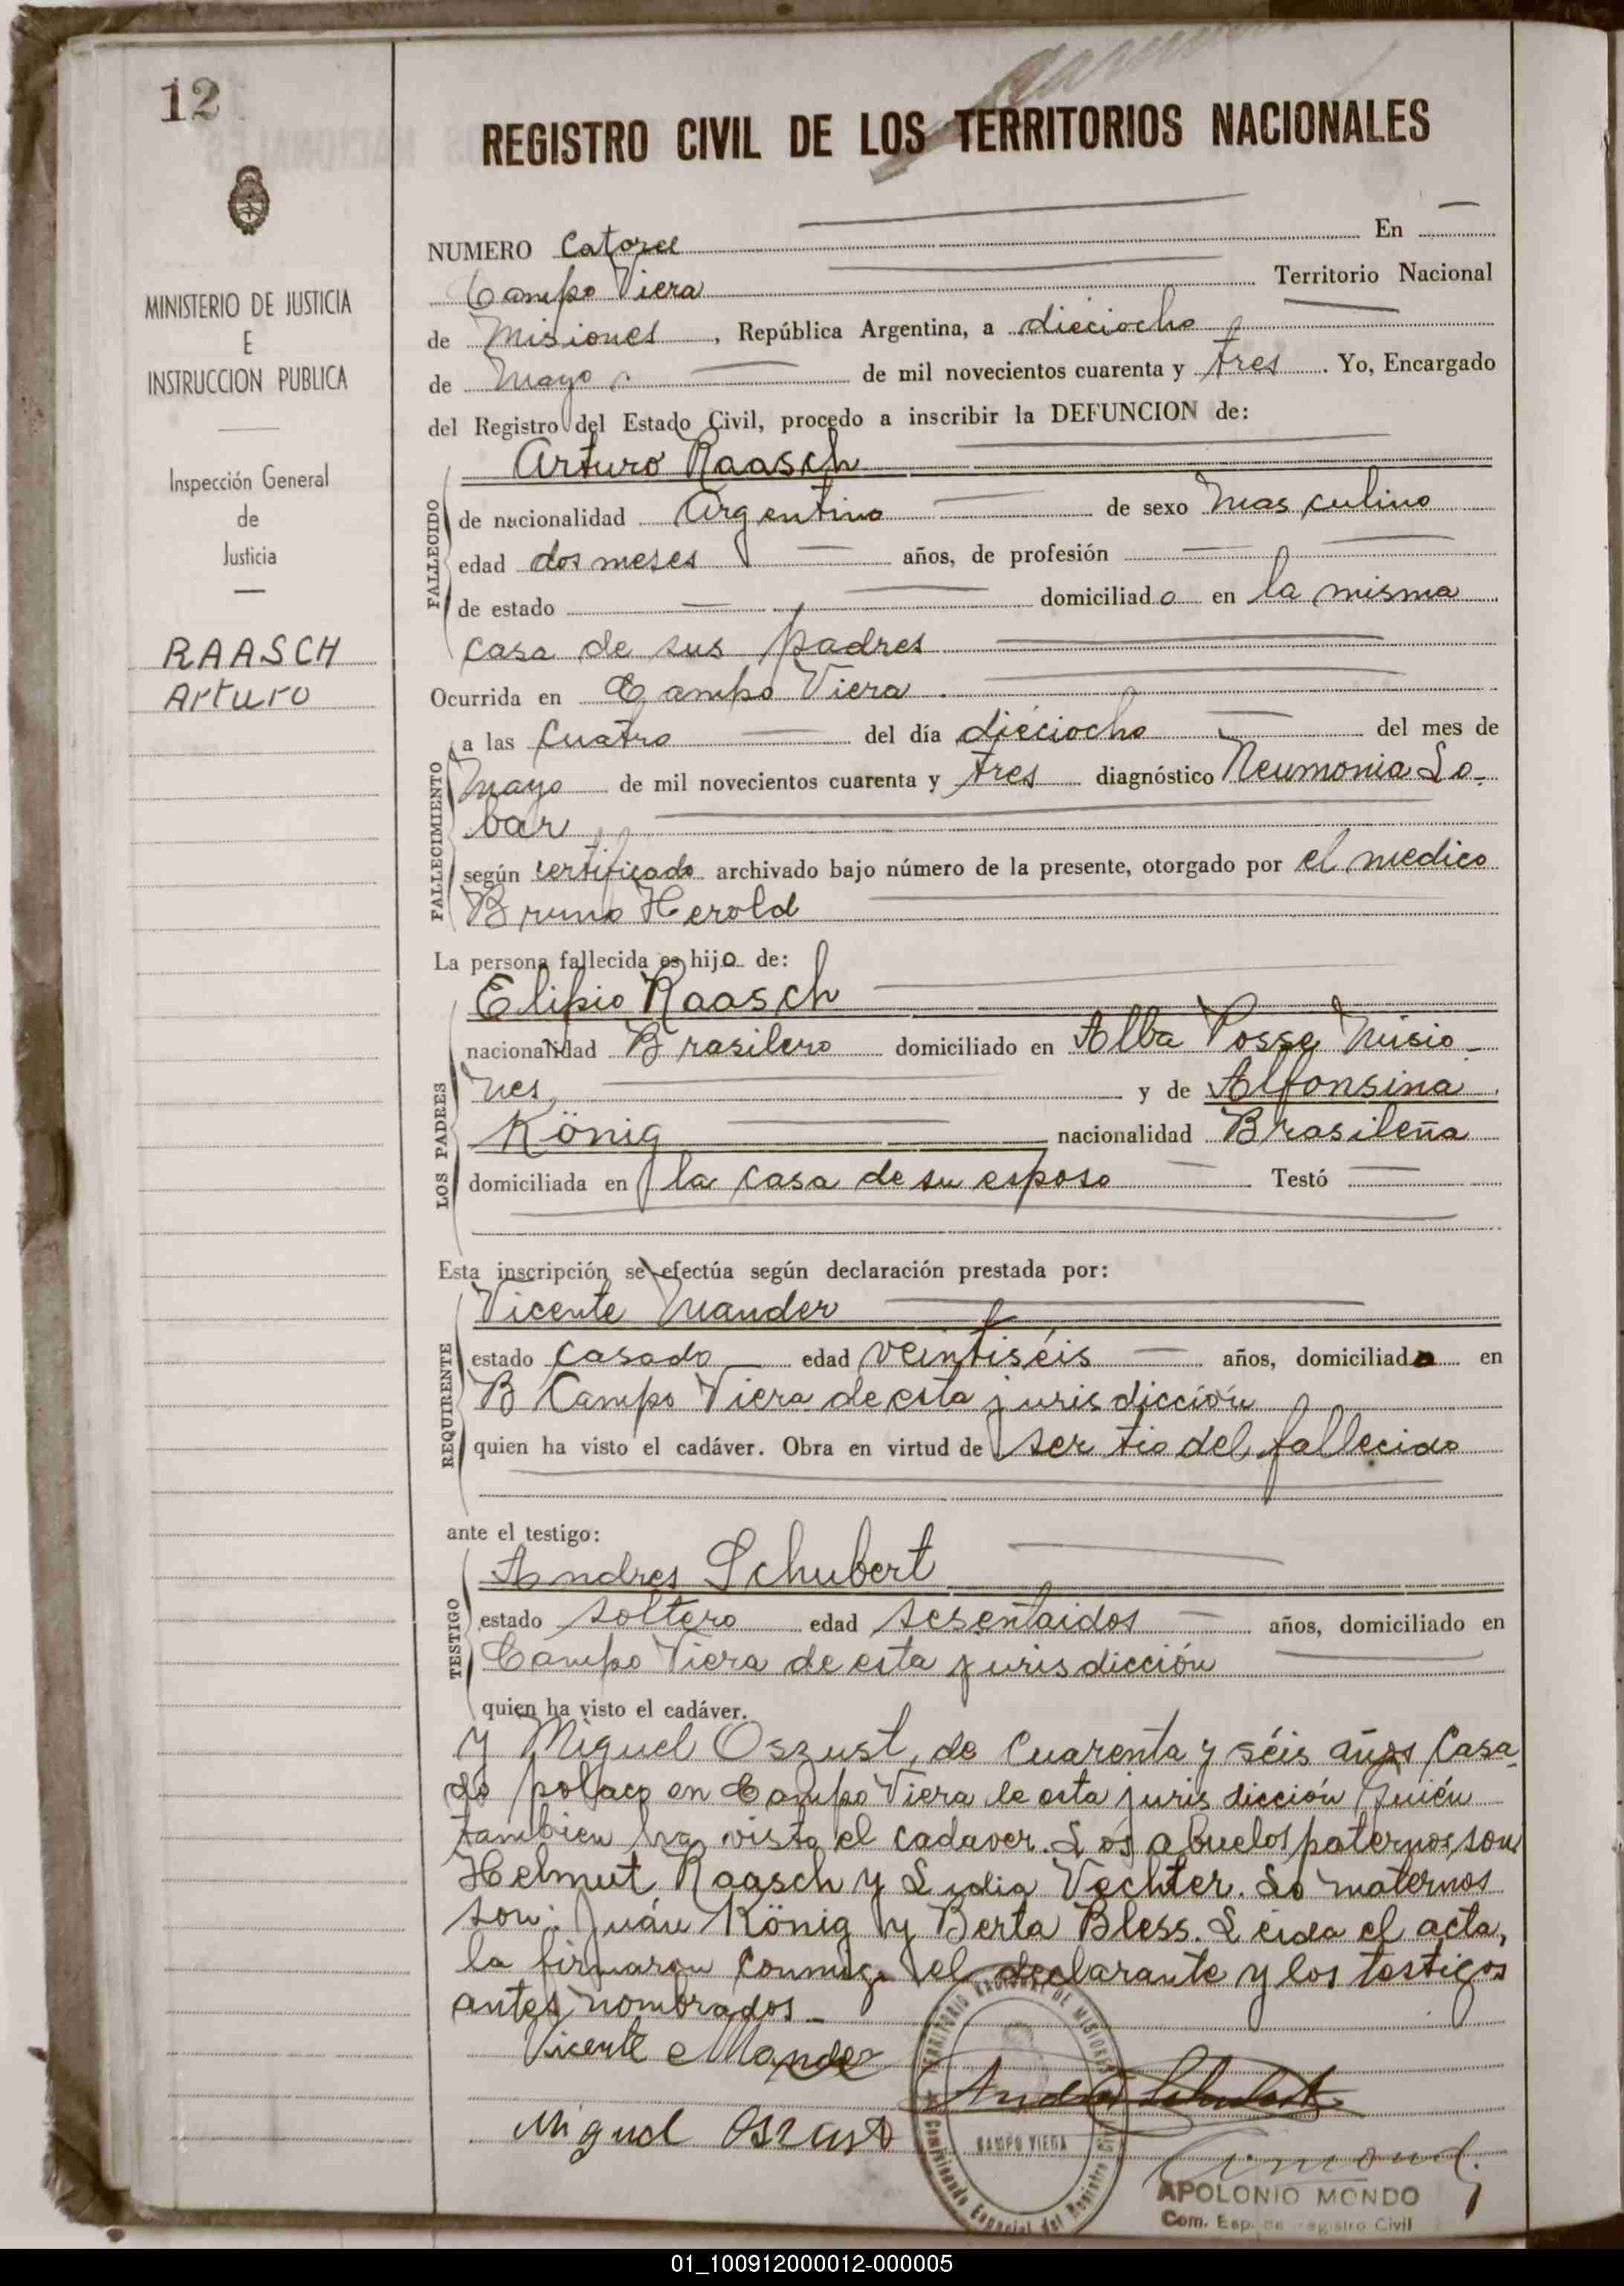 12
MINISTERIO DE JUSTICIA
E
INSTRUCCION PUBLICA
Inspección General
de
Justicia
RAASCH
Arturo
REGISTRO CIVIL DE LOS TERRITORIOS NACIONALES
NUMERO Catorce En
Campo Viera Territorio Nacional
de Misiones, República Argentina, a dieciocho
de Mayo de mil novecientos cuarenta y tres. Yo, Encargado
del Registro del Estado Civil, procedo a inscribir la DEFUNCION de:
Arturo Raasch
FALLECIDO
de nacionalidad Argentino de sexo Masculino
edad dos meses años, de profesión
de estado domiciliado en la misma
casa de sus padres
Ocurrida en Campo Viera.
FALLECIMIENTO
a las cuatro del día dieciocho del mes de
Mayo de mil novecientos cuarenta y tres diagnóstico Neumonia Lo-
bar
según certificado archivado bajo número de la presente, otorgado por el medico
Bruno Herold
La persona fallecida es hijo de:
LOS PADRES
Elipio Raasch
nacionalidad Brasilero domiciliado en Alba Posse Misio-
nes, y de Alfonsina
König nacionalidad Brasileña
domiciliada en la casa de su esposo Testó
Esta inscripción se efectúa según declaración prestada por:
REQUIRENTE
Vicente Mander
estado casado edad veintiséis años, domiciliado en
Campo Viera de esta jurisdicción
quien ha visto el cadáver. Obra en virtud de ser tio del fallecido
ante el testigo:
TESTIGO
Andres Schubert
estado soltero edad sesentaidos años, domiciliado en
Campo Viera de esta jurisdicción
quien ha visto el cadáver.
y Miguel Oszust, de cuarenta y séis años casa-
do polaco en Campo Viera de esta jurisdicción quién
tambien ha visto el cadaver. Los abuelos paternos son
Helmut Raasch y Lidia Vechter. Lo maternos
son: Juán König y Berta Bless. Leida el acta,
la firmaron conmigo el declarante y los testigos
antes nombrados.-
Vicente Mander
Andres Schubert
Miguel Oszust
TERRITORIO NACIONAL DE MISIONES
CAMPO VIERA
Comisionado Especial del Registro Civil
APOLONIO MONDO
Com. Esp. de Registro Civil
01_100912000012-000005